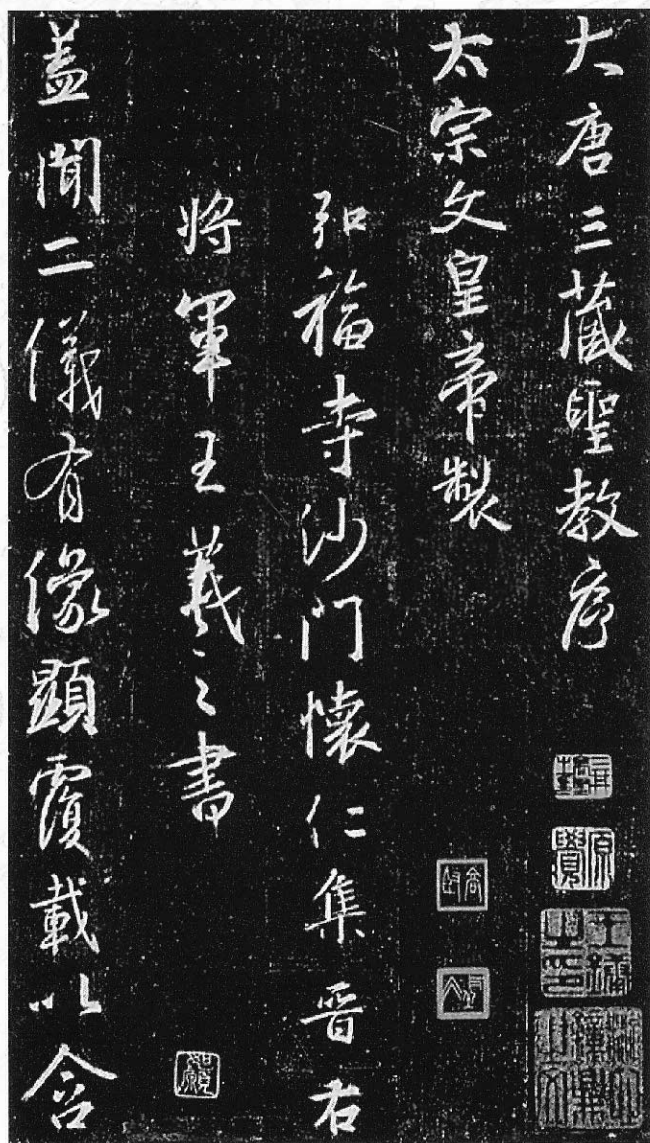 大唐三藏聖教序
太宗文皇帝製
弘福寺沙門懷仁集晋右
將軍王羲之書
盖聞二儀有像顯覆載以含